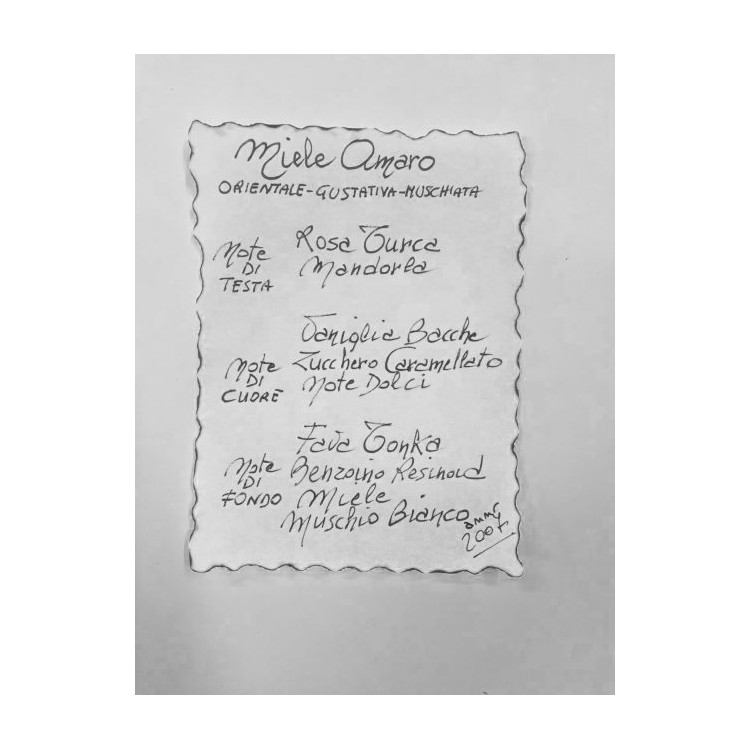 Miele Amaro
ORIENTALE-GUSTATIVA-MUSCHIATA
Note DI TESTA
Rosa Turca
Mandorla
Note DI CUORE
Vaniglia Bacche
Zucchero Caramellato
Note Dolci
Note DI FONDO
Fava Tonka
Benzoino Resinoid
Miele
Muschio Bianco
2007